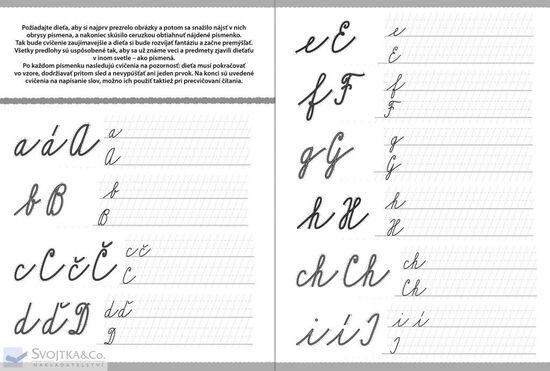 Požiadajte dieťa, aby si najprv prezrelo obrázky a potom sa snažilo nájsť v nich
obrysy písmena, a nakoniec skúsilo ceruzkou obtiahnuť nájdené písmenko.
Tak bude cvičenie zaujímavejšie a dieťa si bude rozvíjať fantáziu a začne premýšľať.
Všetky predlohy sú uspôsobené tak, aby sa už známe veci a predmety zjavili dieťaťu
v inom svetle – ako písmená.
Po každom písmenku nasledujú cvičenia na pozornosť: dieťa musí pokračovať
vo vzore, dodržiavať pritom sled a nevypúšťať ani jeden prvok. Na konci sú uvedené
cvičenia na napísanie slov, možno ich použiť taktiež pri precvičovaní čítania.
a á A
a
A
b B
b
B
c C č Č
c č
C
d ď D
d ď
D
SVOJTKA&CO.
NAKLADATELSTVÍ
e E
e
E
f F
f
F
g G
g
G
h H
h
H
ch Ch
ch
Ch
i í I
i í
I